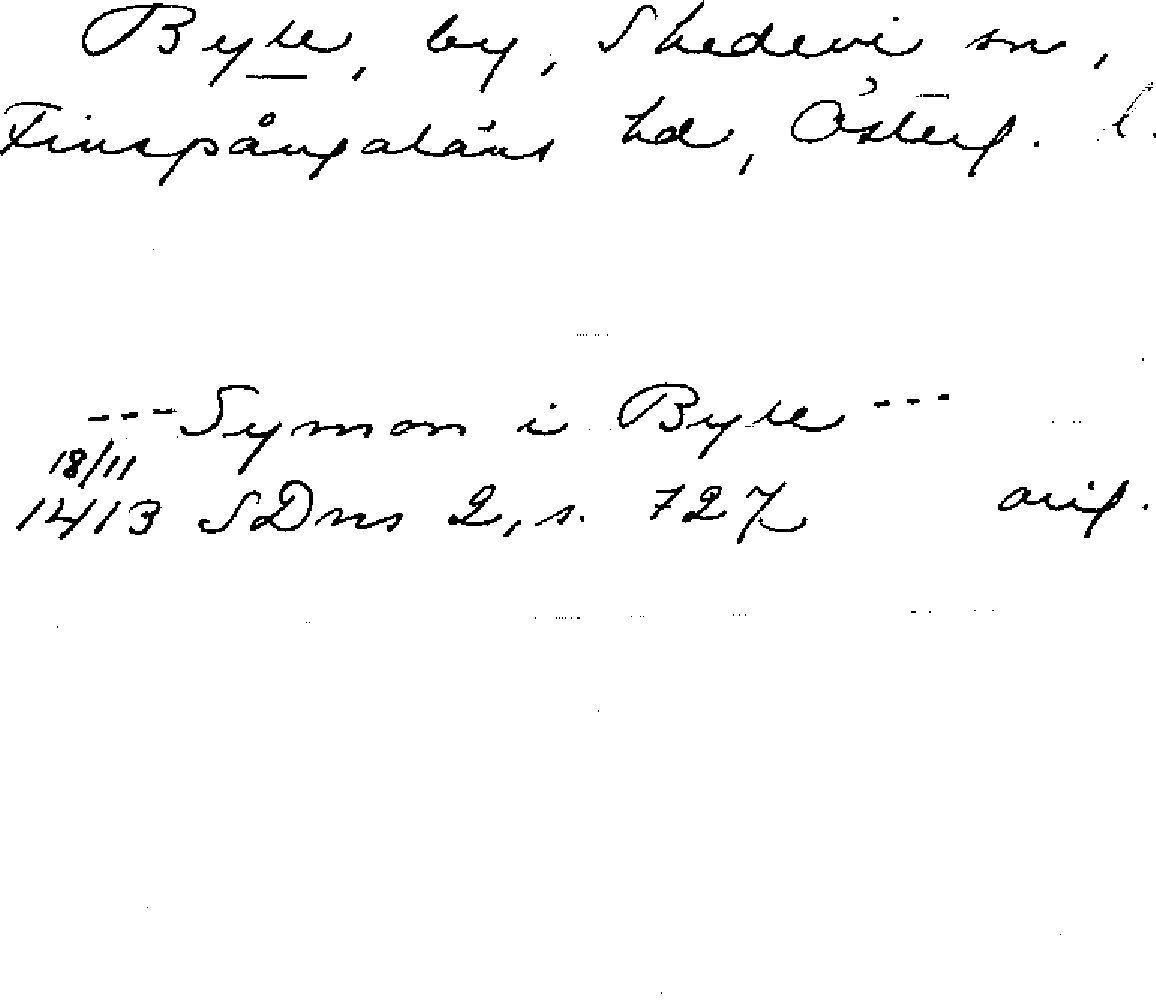 Byte, by, Skedevi sn,
Finspångaläns hd, Österg. l.
---Symon i Byte---
18/11
1413 SDns 2, s. 727 orig.